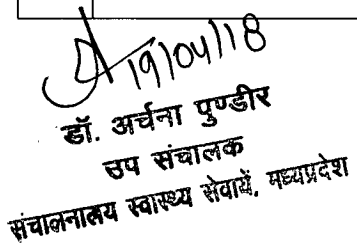 19/04/18
डॉ. अर्चना पुण्डीर
उप संचालक
संचालनालय स्वास्थ्य सेवायें, मध्यप्रदेश